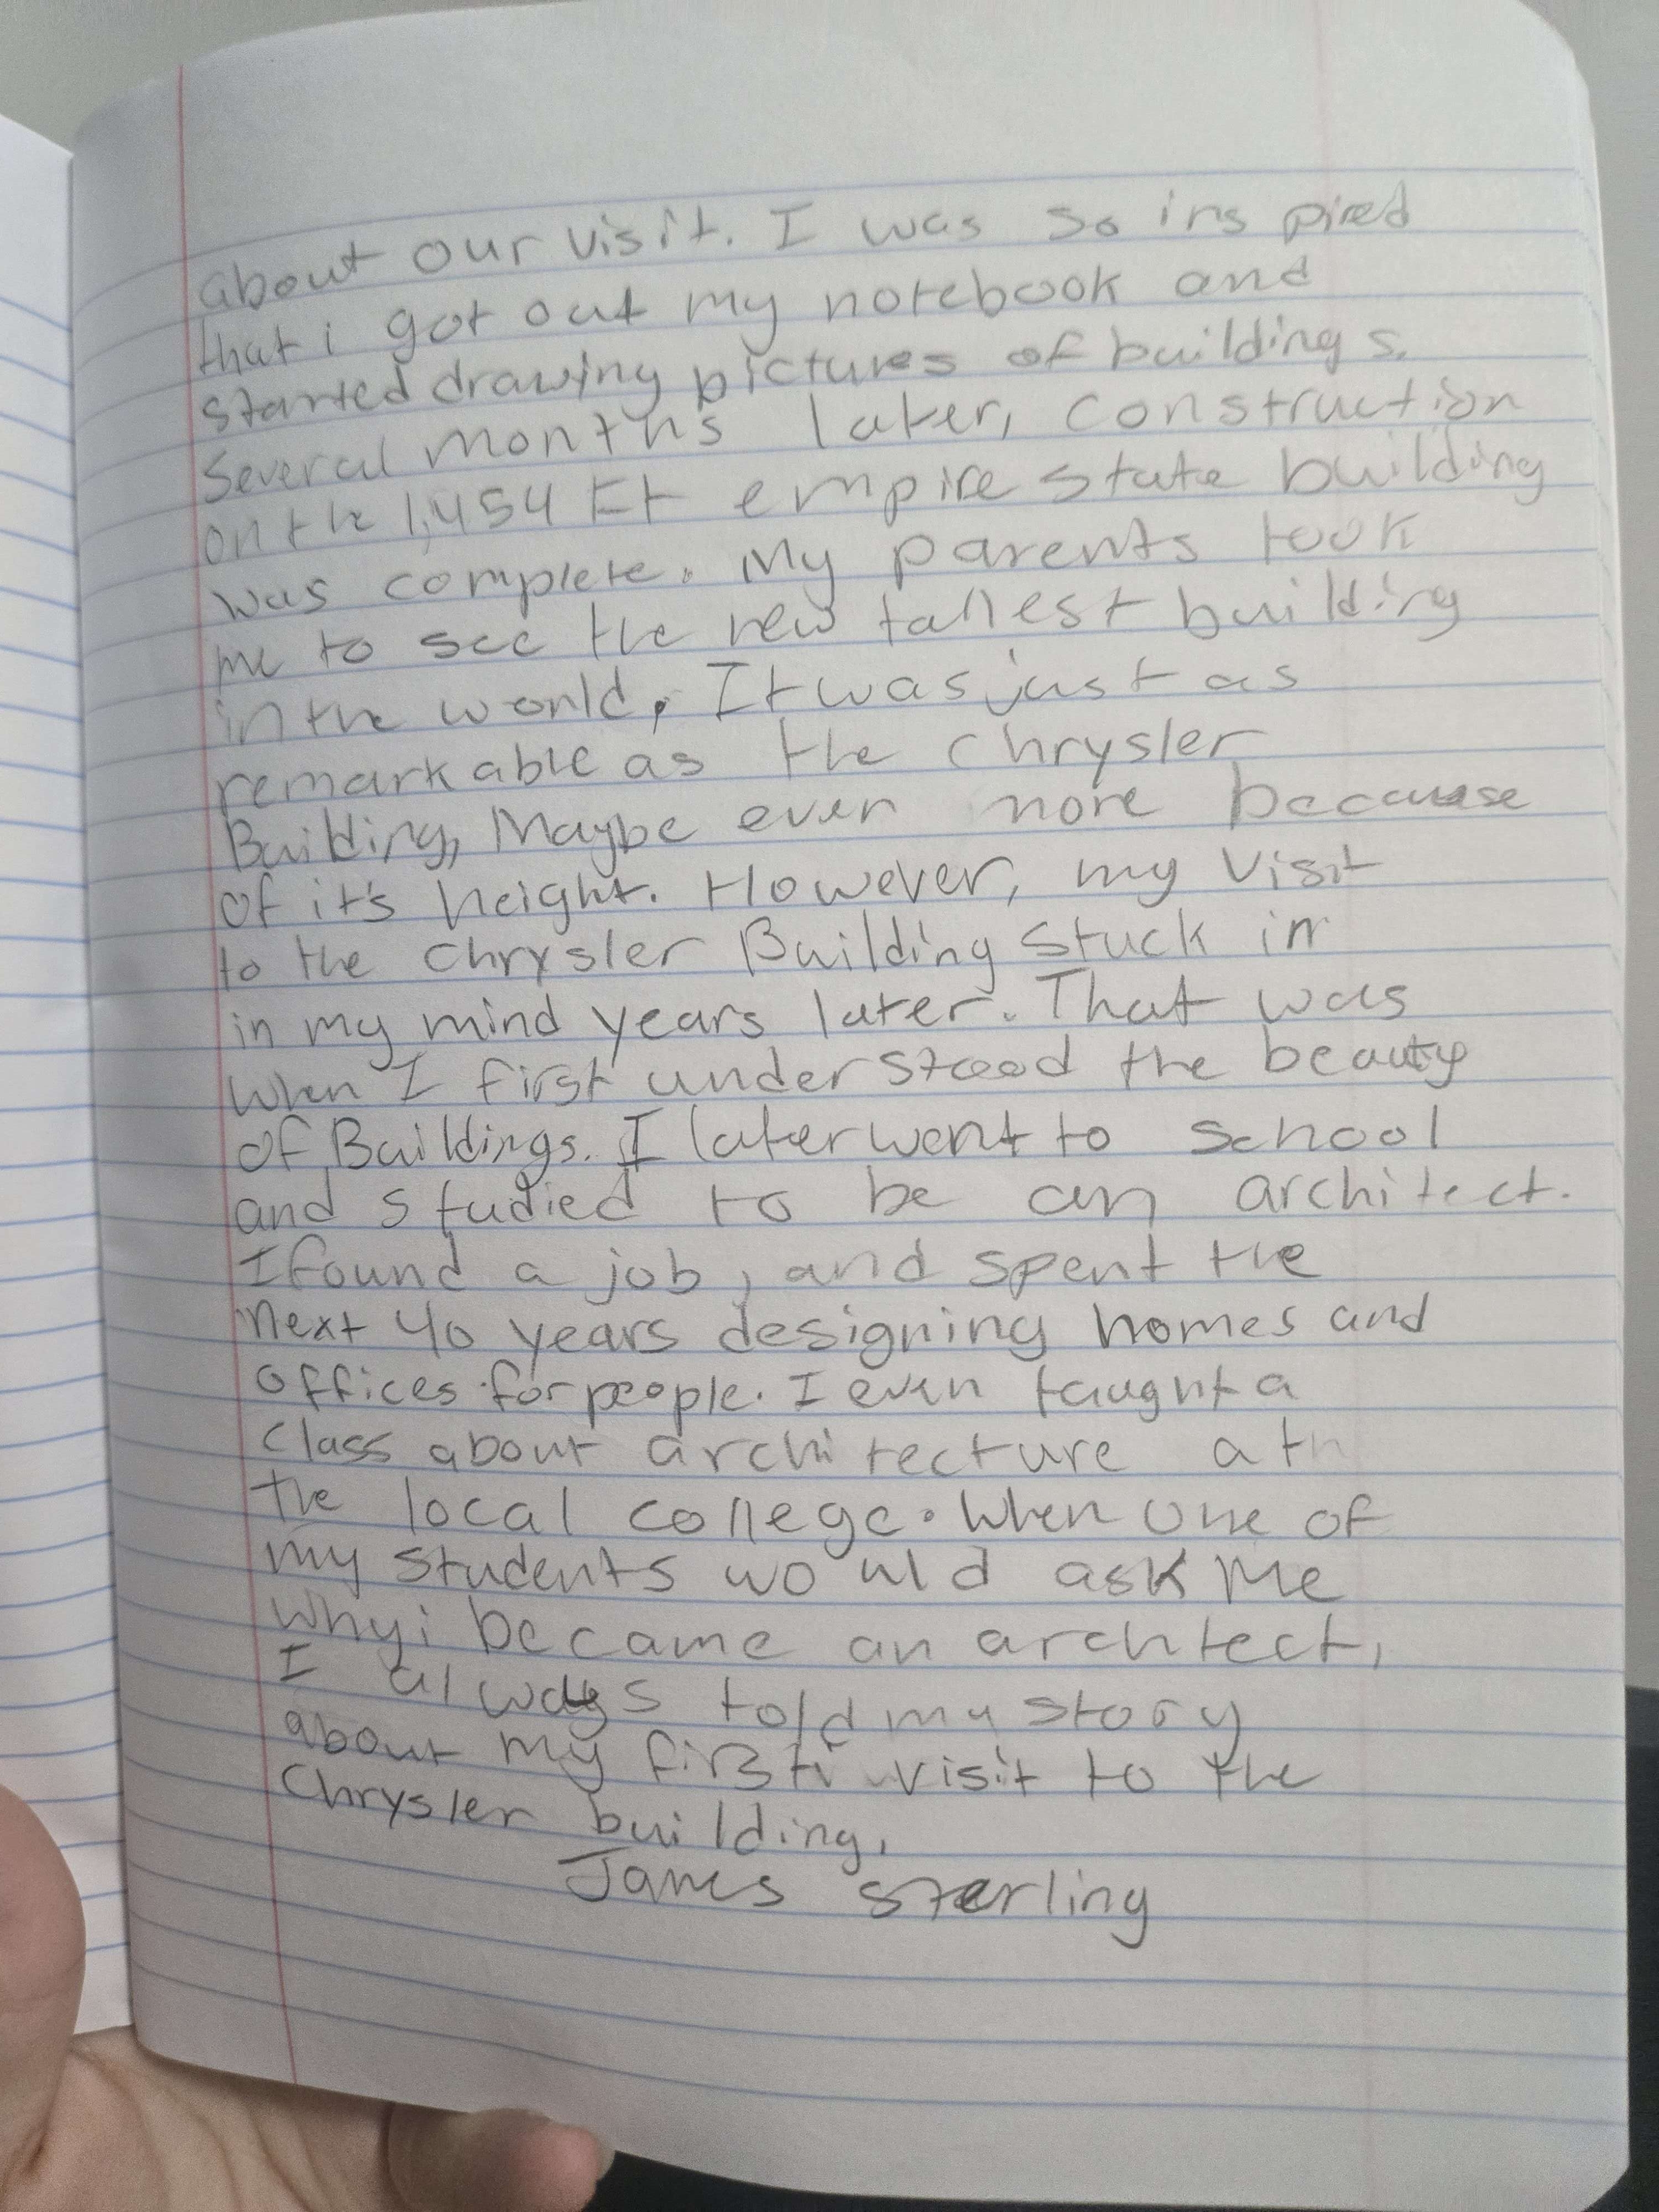 about our visit. I was so inspired
that i got out my notebook and
started drawing pictures of buildings.
Several months later, construction
on the 1,454 Ft empire state building
was complete. My parents took
me to see the new tallest building
in the world. It was just as
remarkable as the Chrysler
Building, Maybe even more because
of it's height. However, my visit
to the Chrysler Building stuck in
in my mind years later. That was
when I first understood the beauty
of Buildings. I later went to school
and studied to be an architect.
I found a job, and spent the
next 40 years designing homes and
offices for people. I even taught a
class about architecture at
the local college. When one of
my students would ask Me
why i became an architect,
I always told my story
about my first visit to the
Chrysler building.
James sterling